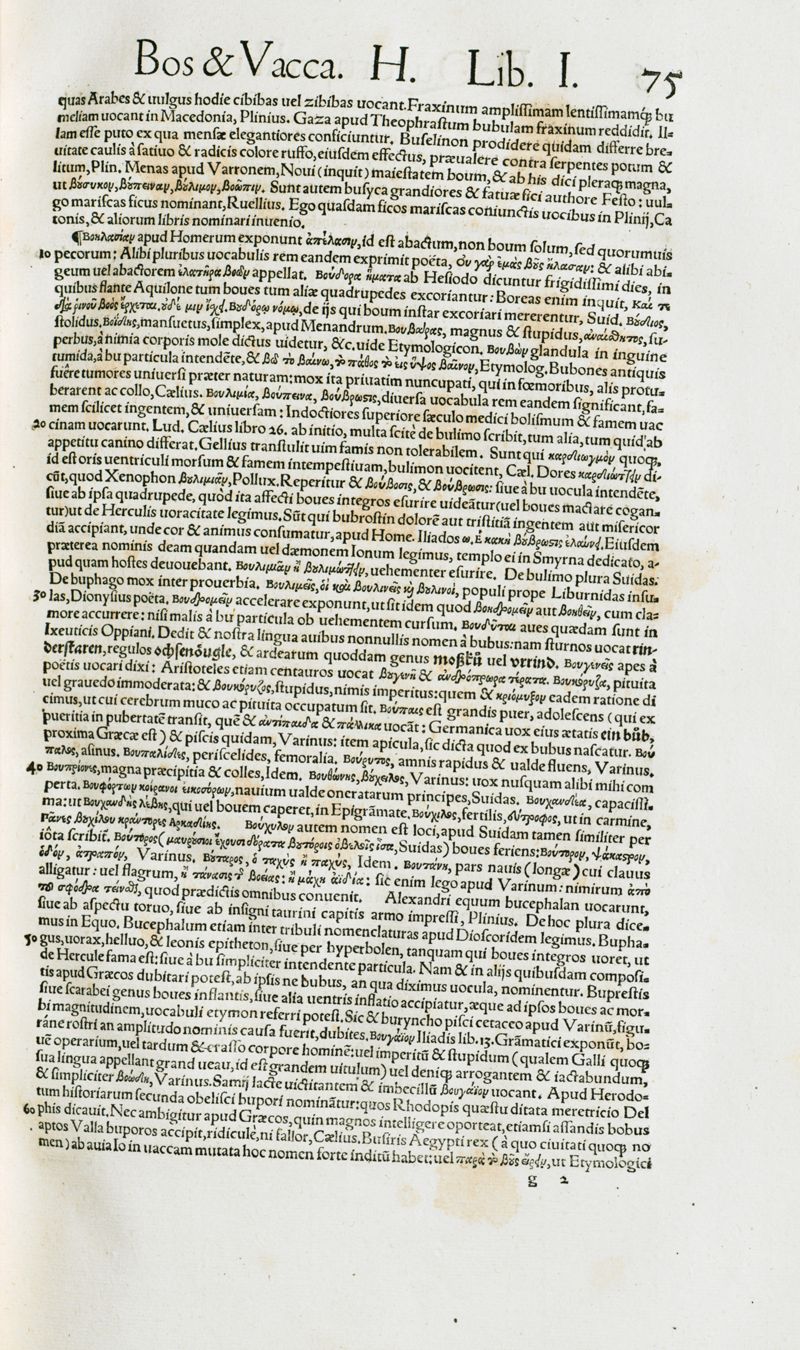 Bos & Vacca. H. Lib. I. 75
quas Arabes & uulgus hodie cibibas uel zibibas uocant. Fraxinum amplissimam lentissimamq́; bu
meliam uocant in Macedonia, Plinius. Gaza apud Theophrastum bubulam fraxinum reddidit. Il-
lam esse puto ex qua mensæ elegantiores conficiuntur. Buselinon prodidere quidam differre bre-
uitate caulis à satiuo & radicis colore ruffo, eiusdem effectus, præualere contra serpentes potum &
litum, Plin. Menas apud Varronem, Noui (inquit) maiestatem boum, & ab his dici pleraq; magna,
ut βούσυκον, βούπειναν, βούλιμον, βοῶπιν. Sunt autem busyca grandiores & fatuæ fici authore Festo: uul-
go mariscas ficus nominant, Ruellius. Ego quasdam ficos mariscas coniunctis uocibus in Plinij, Ca
tonis, & aliorum libris nominari inuenio.
¶ Βοηλασίαν apud Homerum exponunt ἀπέλασιν, id est abactum, non boum solum, sed quorumuis
10 pecorum: Alibi pluribus uocabulis rem eandem exprimit poëta, Οὐ γὰρ ἐμὰς βοῦς ἤλασαν: & alibi abi-
geum uel abactorem ἐλατῆρα βοῶν appellat. Βουδόρα ἤματα ab Hesiodo dicuntur frigidissimi dies, in
quibus flante Aquilone tum boues tum aliæ quadrupedes excoriantur: Boreas enim inquit, Καί τε
διὰ ῥινοῦ βοὸς ἔρχεται, οὐδέ μιν ἴσχει. Βουδόρῳ νόμῳ, de ijs qui boum instar excoriari mererentur, Suid.
stolidus, mansuetus, simplex, apud Menandrum. magnus & stupidus, ἀναίσθητος, su-
perbus, à nimia corporis mole dictus uidetur, &c. uide Etymologicon. Βουβὼν glandula in inguine
tumida, à bu particula intendẽte, & τὸ βαίνω, τὸ πάθος τὸ εἰς ὕψος βαῖνον, Etymolog. Bubones antiquis
fuêre tumores uniuersi præter naturam: mox ita priuatim nuncupati, qui in fœmoribus, alis protu-
berarent ac collo, Cælius. Βουλιμία, βούπεινα, βούβρωσις, diuersa uocabula rem eandem significant, fa-
mem scilicet ingentem, & uniuersam: Indoctiores superiore sæculo medici bolismum & famem uac
20 cinam uocarunt. Lud. Cælius libro 26. ab initio, multa scitè de bulimo scribit, tum alia, tum quid ab
appetitu canino differat. Gellius transtulit uim famis non tolerabilem. Sunt qui καρδιωγμὸν quoq;,
id est oris uentriculi morsum & famem intempestiuam, bulimon uocitent, Cæl. Dores καρδιώττειν di-
cũt, quod Xenophon βουλιμιᾷν, Pollux. Reperitur & βούβοσις, & βούβρωσις: siue à bu uocula intendẽte,
siue ab ipsa quadrupede, quòd ita affecti boues integros esurire uideãtur (uel boues mactare cogan-
tur) ut de Herculis uoracitate legimus. Sũt qui bubrostin dolorẽ aut tristitiã ingentem aut misericor
diã accipiant, unde cor & animus consumatur, apud Home. Iliados ω. Ἑ κακὴ βούβρωστις ἐλαύνει. Eiusdem
præterea nominis deam quandam uel dæmonem Ionum legimus, templo ei in Smyrna dedicato, a-
pud quam hostes deuouebant. Βουλιμιᾷν ἢ βουλιμώττειν, uehementer esurire. De bulimo plura Suidas.
De buphago mox inter prouerbia. Βουλιμεῖς, οἱ καὶ Βουλινεῖς καὶ Βουλινοι, populi prope Liburnidas insu-
30 las, Dionysius poëta. Βουδρομεῖν accelerare exponunt, ut sit idem quod βοηδρομεῖν aut βοηθεῖν, cum cla-
more accurrere: nisi malis à bu particula ob uehementem cursum. Βουδύται aues quædam sunt in
Ixeuticis Oppiani. Dedit & nostra lingua auibus nonnullis nomen à bubus: nam sturnos uocat rin-
derstaren, regulos ochsenöugle, & ardearum quoddam genus moßkũ uel vrrind. Βουγενεῖς apes à
poëtis uocari dixi: Aristoteles etiam centauros uocat βουγενῆ & ἀνδρόπρωρα τέρατα. Βουκόρυζα, pituita
uel grauedo immoderata: & βουκόρυζος, stupidus, nimis imperitus: quem & κριόμυξον eadem ratione di
cimus, ut cui cerebrum muco ac pituita occupatum sit. Βούπαις est grandis puer, adolescens (qui ex
pueritia in pubertatẽ transit, quẽ & ἀντίπαιδα & πάλληκα uocãt: Germanica uox eius ætatis ein bůb,
proxima Græcæ est) & piscis quidam, Varinus: item apicula, sic dicta quod ex bubus nascatur. Βού
παλος, asinus. Βουπαλίδες, periscelides, femoralia. Βούρυτος, amnis rapidus & ualde fluens, Varinus.
40 Βουπρίονες, magna præcipitia & colles, Idem. Βουθώνης, Varinus: uox nusquam alibi mihi com
perta. Βουφόρτων κοίρανοι εἰκοσόρων, nauium ualde oneratarum principes, Suidas. Βουχανδέα, capacissi.
ma: ut Βουχανδὴς λέβης, qui uel bouem caperet, in Epigrãmate. Βούχιλος, fertilis, εὔτροφος, ut in carmine,
Πᾶνες βουχίλου κράντορες Ἀρκαδίης. Βούχυλον autem nomen est loci, apud Suidam tamen similiter per
iôta scribit̃. Βούπορος (μαυρούσιοι ἔχουσι δόρατα βουπόροις ὀβελοῖς ἴσα, Suidas) boues feriens: Βούπορον,
ὁδὸν, ἀτραπὸν, Varinus. ὁ ταχὺς ἢ παχὺς, Idem. Βουτάνη, pars nauis (longæ) cui clauus
alligatur: uel flagrum, ἢ τάνασις τῆς βοείας: ἢ μάχη ἀϊδία: sic enim lego apud Varinum: nimirum ἀπὸ
τοῦ σφόδρα τείνεσθαι, quod prædictis omnibus conuenit. Alexandri equum bucephalan uocarunt,
siue ab aspectu toruo, siue ab insigni taurini capitis armo impressi, Plinius. De hoc plura dice-
mus in Equo. Bucephalum etiam inter tribuli nomenclaturas apud Dioscoridem legimus. Bupha-
50 gus, uorax, helluo, & leonis epitheton, siue per hyperbolen, tanquam qui boues integros uoret, ut
de Hercule fama est: siue à bu simpliciter intendente particula. Nam & in alijs quibusdam composi-
tis apud Græcos dubitari potest, ab ipsis ne bubus, an qua diximus uocula, nominentur. Buprestis
siue scarabei genus boues inflantis, siue alia uentris inflatio accipiatur, æque ad ipsos boues ac mor-
bi magnitudinem, uocabuli etymon referri potest. Sic & buryncho pisci cetaceo apud Varinũ, figu-
râne rostri an amplitudo nominis causa fuerit, dubites. Βουγάϊον Iliadis lib. 13. Grãmatici exponũt, bo-
uẽ operarium, uel tardum & crasso corpore hominẽ: uel imperitũ & stupidum (qualem Galli quoq;
sua lingua appellant grand ueau, id est grandem uitulum) uel deniq; arrogantem & iactabundum,
& simpliciter Varinus. Samij lacte uictitantem & imbecillũ βουγάϊον uocant. Apud Herodo-
tum historiarum secunda obelisci bupori nominãtur: quos Rhodopis quæstu ditata meretricio Del
60 phis dicauit. Nec ambigitur apud Græcos, quin magnos intelligere oporteat, etiamsi assandis bobus
aptos Valla buporos accipit, ridiculè, ni fallor, Cælius. Busiris Aegypti rex (à quo ciuitati quoq; no
men) ab auia Io in uaccam mutata hoc nomen forte inditũ habet: uel παρὰ τὸ βοῦς εἴρειν, ut Etymologici
g 2